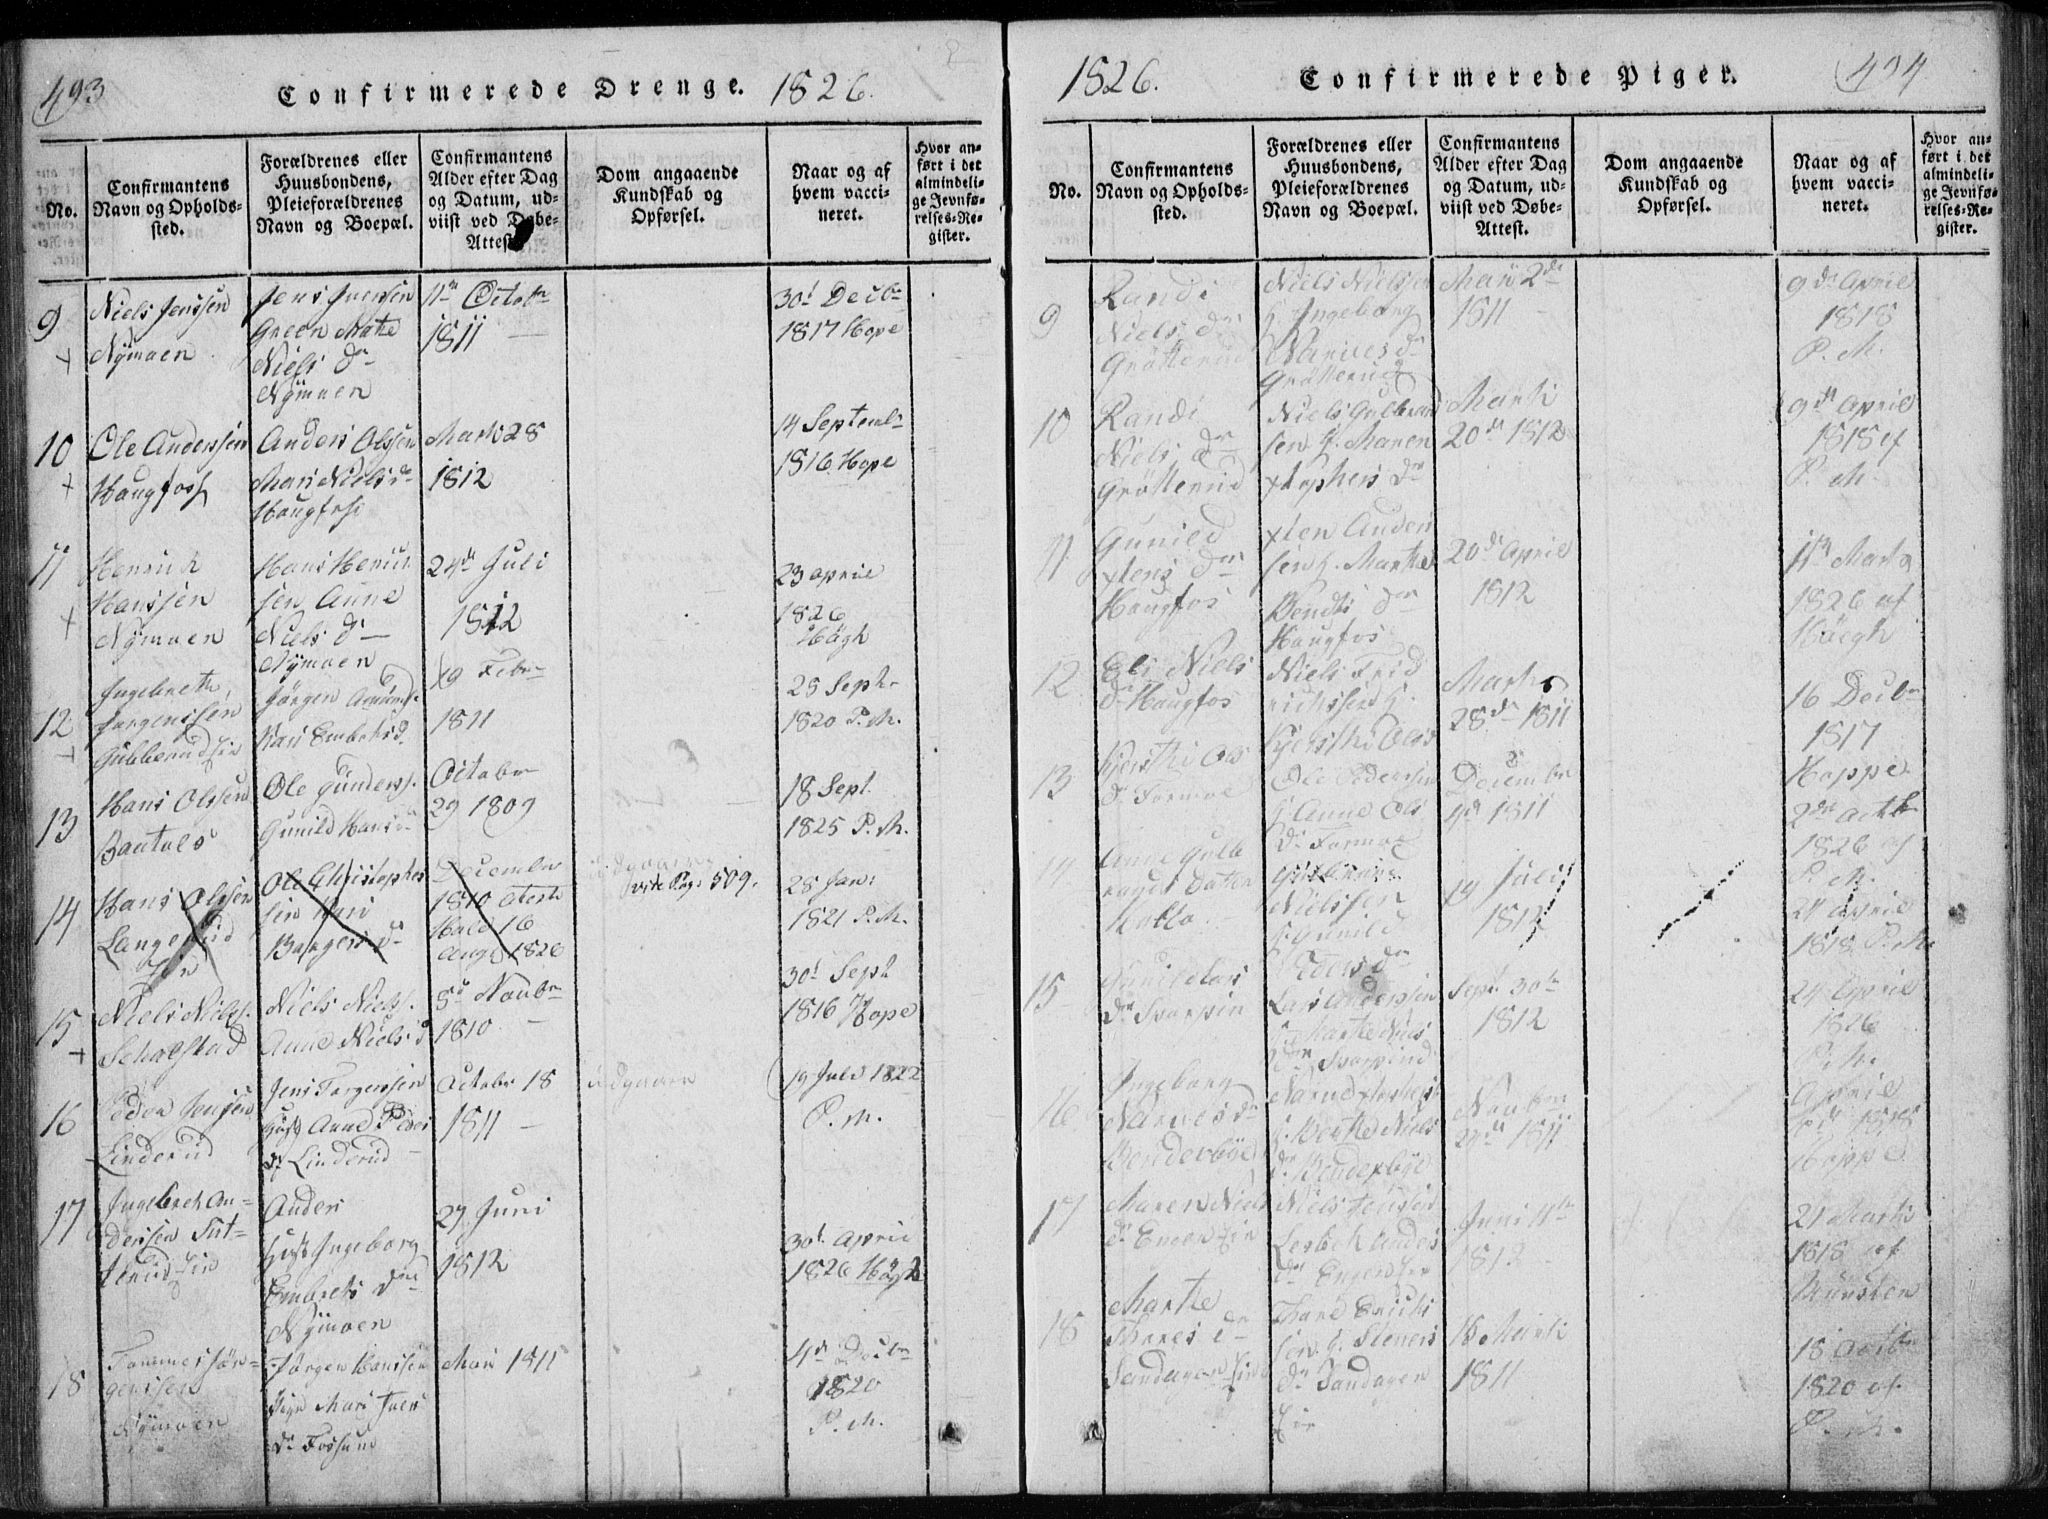 493
Confirmerede Drenge. 1826.
No.
Confirmantens
Navn og Opholds-
sted.
Forældrenes eller
Huusbondens,
Pleieforældrenes
Navn og Boepæl.
Confirmantens
Alder efter Dag
og Datum, ud-
viist ved Døbe-
Attest.
Dom angaaende
Kundskab og
Opførsel.
Naar og af
hvem vacci-
neret.
Hvor an-
ført i det
almindeli-
ge Jevnfø-
relses-Re-
gister.
9
Niels Jenssen
Nÿmoen
Jens Iversen
Green Marte
Niels Dr
Nÿmoen
11te Octobr
1811
30d Decbr
1817 Hope
10
Ole Anderssen
Haugfoss
Anders Olssen
Mari Niels dr
Haugfoss
Marti 28
1812
14 Septembr
1816 Hope
11
Henrich
Hanssen
Nÿmoen
Hans Henrich
sen Anne
Niels Dr
Nÿmoen
24de Juli
1812
23 April
1826
Høgh
12
Ingebreth
Jørgenssen
Gubberud Ein
Jørgen Amunds.
Kari Embrets d.
19 Febr
1811
25 Septr
1820 P. M.
13
Hans Olssen
Ole Gunders.
Gunild Hans d
Octobr
29 1809
18 Sept.
1825 P. M.
14
Hans Olssen
Langerud
Ein
Ole Christopher
sen Kari
Borgers Dr
December
1810 Attest
Hald 16
Aug. 1826
udgaaer
vide Pag: 509.
28 Jan:
1821 P. M.
15
Niels Nielss.
Schalstad
Niels Nielss.
Anne Niels d
5d Novbr
1810
30d Sept
1816 Hope
16
Peder Jenssen
Linderud
Jens Torgerssen
Hust Anne Peders
Dr Linderud
Octobr 18
1811
udgaaer
19 Juli 1822
P. M.
17
Ingebreth An-
derssen
Ein
Anders
Hust Ingeborg
Embrets Dr
Nÿmoen
27 Juni
1812
30d April
1826 Høgh
18
Tommes Jør-
genssen
Nÿmoen
Jørgen Hanssen
Pige Mari Ivers
Dr Fossum
Mai 1811
4d Decbr
1820
P. M.
1826. Confirmerede Piger.
494
No.
Confirmantens
Navn og Opholds-
sted.
Forældrenes eller
Huusbondens,
Pleieforældrenes
Navn og Boepæl.
Confirmantens
Alder efter Dag
og Datum, ud-
viist ved Døbe-
Attest.
Dom angaaende
Kundskab og
Opførsel.
Naar og af
hvem vacci-
neret.
Hvor an-
ført i det
almindeli-
ge Jevnfø-
relses-Re-
gister.
9
Randi
Niels Dr
Grøtterud
Niels Nielssen
H Ingeborg
Narves Dr
Grøtterud
Mai 2de
1811
9de April
1818
P. M.
10
Randi
Niels Dr
Grøtterud
Niels Gulbrand
sen H. Maren
xtophers Dr
Marti
20de 1812
9de April
1818 af
P. M.
11
Gunild
xtens Dr
Haugfos
xten Anders
sen H. Marthe
Bendts Dr
Haugfos
20de April
1812
11te Marti
1826 af
Høegh
12
Eli Niels
Dr Haugfos
Niels Frid
richssen H.
Kjersthi Ols
Marti
28de 1811
16 Decbr
1817
Hoppe
13
Kjersthi Ols
Dr Formoe
Ole Pederssen
H Anne Ols
Dr Formoe
Decembr
9d 1811
2de Octbr
1826 af
P. M.
14
Anne Gulb
rands Datter
Gulbrand
Nielssen
H. Gunild
Peders Dr
19 Juli
1812
24 April
1818 P. M.
15
Gunild Lars
Dr Svarpin
Lars Anderssen
H Marthe Niels
Dr Svarpind
Sept 30te
1812
24 April
1826
P. M.
16
Ingeborg
Narves Dr
Bendexbye
H. Berthe Niels
Dr Bendexbye
Novbr
24de 1811
April
1818
Hoppe
17
Maren Niels
Dr Engen Ein
Niels Jenssen
Lesbeth Anders
Dr Engen Ein
Juni 11te
1812
21 Marti
1818 af
Münster
18
Marthe
Thores Dr
Sandagen Ein
Thore Erichs
sen H. Steners
Dr Sandagen
Ein
16 Marti
1811
18 Octbr
1820 af
P. M.